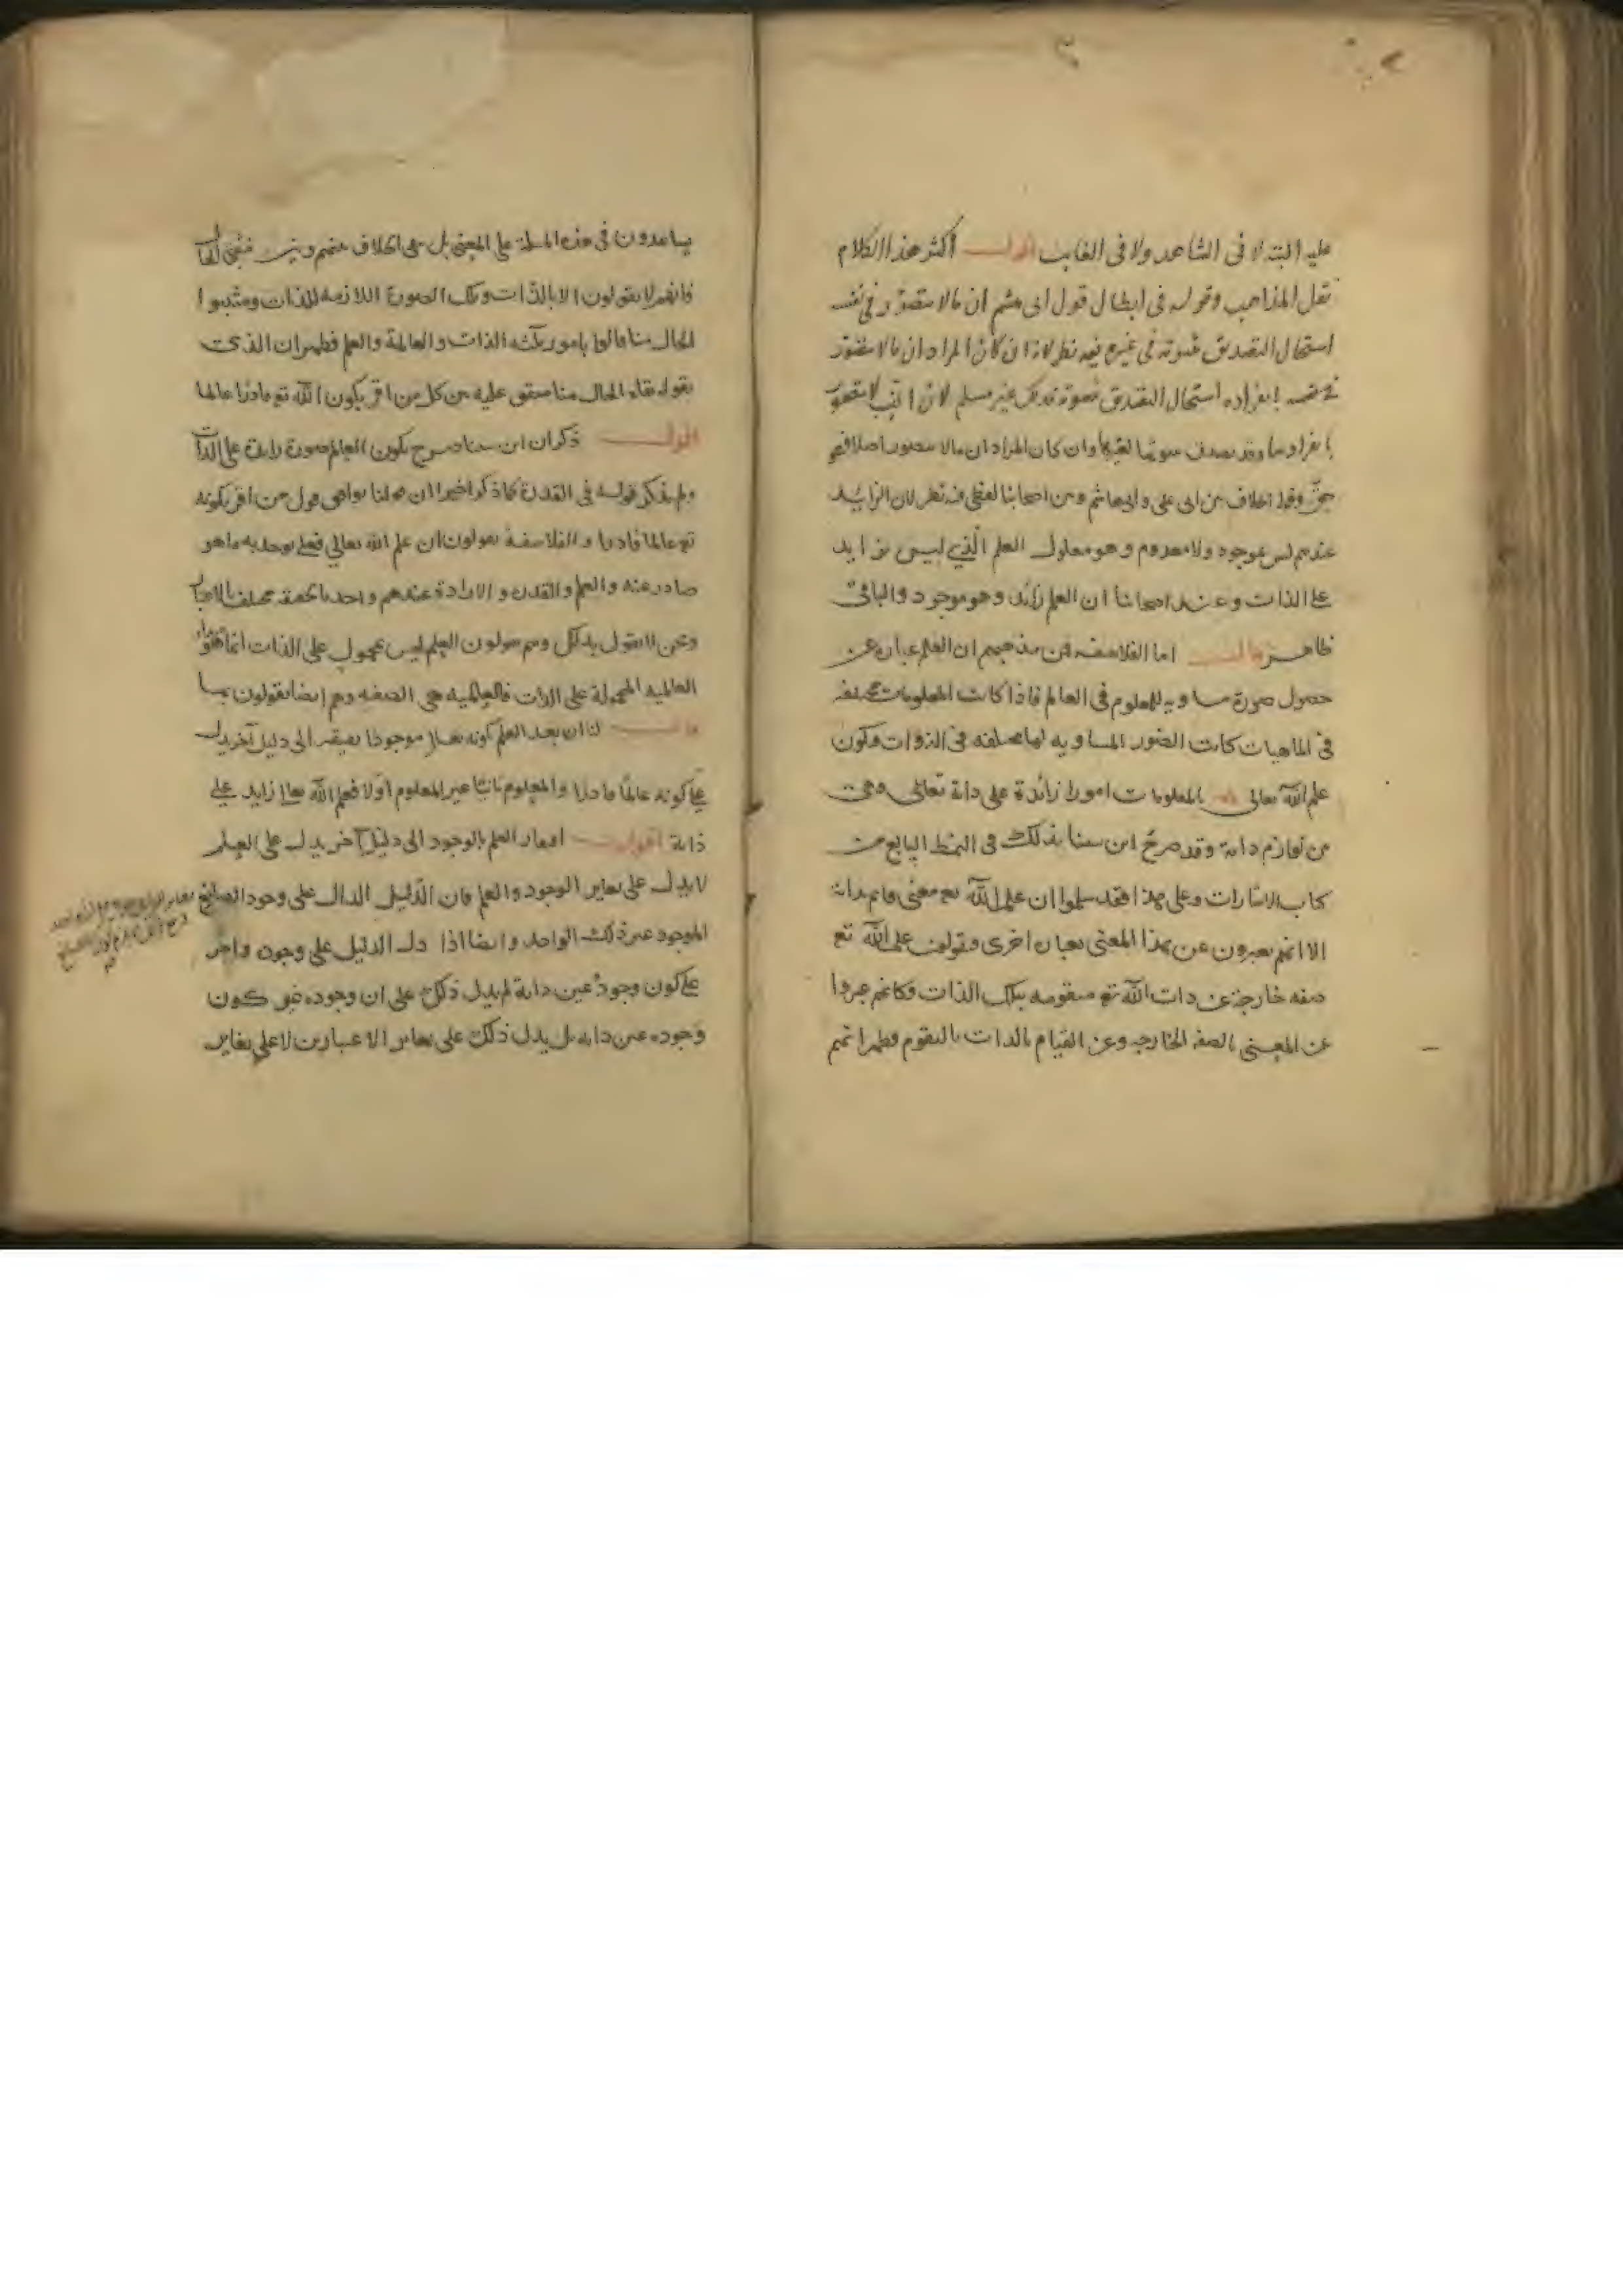 عليه البتة لا فى الشاهد ولا فى الغايب اقول اكثر هذا الكلام
نقل المذاهب وقوله فى ابطال قول ابى هشم ان مالا يتصور فى نفسه
استحال التصديق بثبوته فى غيره فيه نظر لانه ان كان المراد ان مالا يتصور
فى نفسه بانفراده استحال التصديق بثبوته فذلك غير مسلم لان النسب لا يتصور
بانفرادها وقد يصدق بثبوتها لغيرها وان كان المراد ان مالا يتصور اصلا فهو
حق وقوله الخلاف بين ابى على وابى هاشم ومن اصحابنا لفظى فيه نظر لان الزايد
عندهم ليس بموجود ولا معدوم وهو معلول العلم الذى ليس بزايد
على الذات وعند اصحابنا ان العلم زائد وهو موجود والباقى
ظاهر قال اما الفلاسفه فمن مذهبهم ان العلم عبارة عن
حصول صورة مساويه للمعلوم فى العالم فاذا كانت المعلومات مختلفه
فى الماهيات كانت الصور المساويه لها مختلفه فى الذوات فكون
علم الله تعالى بالمعلومات امورا زائدة على ذاته تعالى وهى
من لوازم ذاته وقد صرح ابن سينا بذلك فى النمط السابع من
كتاب الاشارات وعلى هذا فقد سلموا ان علم الله تع معنى قايم بذاته
الا انهم يعبرون عن هذا المعنى بعبارة اخرى ويقولون علم الله تع
صفه خارجة عن ذات الله تع متقومه بتلك الذات فكانهم عبروا
عن المعنى بالصفه الخارجه وعن القيام بالذات بالتقوم فظهر انهم
يساعدون فى هذه المسلة على المعنى بل هى الخلاف منهم وبين
فانهم لا يقولون الا بالذات وتلك الصورة اللازمه للذات ومثبتوا
الحال منا قالوا بامور ثلثه الذات والعالمية والعلم فظهر ان الذى
يقوله نفاة الحال منا متفق عليه بين كل من اقر بكون الله تع قادرا عالما
اقول ذكر ان ابن سينا صرح بكون العالم صورة زايدة على الذات
ولم يذكر قوله فى القدرة كما ذكر اخيرا ان قولنا يوافق قول من اقر بكونه
تع عالما قادرا والفلاسفة يقولون ان علم الله تعالى فعلى يوجد به ما هو
صادر عنه والعلم والقدرة والارادة عندهم واحد بالحقيقة مختلف بالاعتبار
ونحن لا نقول بذلك وهم يقولون العلم ليس بمحمول على الذات انما هو
العالميه المحمولة على الذات فالعالميه هى الصفه وهم ايضا يقولون بها
قال لنا ان بعد العلم بكونه تعالى موجودا يفتقر الى دليل آخر يدل
على كونه عالما قادرا والمعلوم ثانيا غير المعلوم اولا فعلم الله تعالى زايد على
ذاته اقول افتقار العلم بالوجود الى دليل آخر يدل على العلم
لا يدل على تغاير الوجود والعلم فان الدليل الدال على وجود الصانع
الموجود غير ذلك الواحد وايضا اذا دل الدليل على وجوده وآخر
على كون وجوده عين ذاته لم يدل ذلك على ان وجوده غير كون
وجوده عين ذاته بل يدل ذلك على تغاير الاعتبارين لا على تغاير